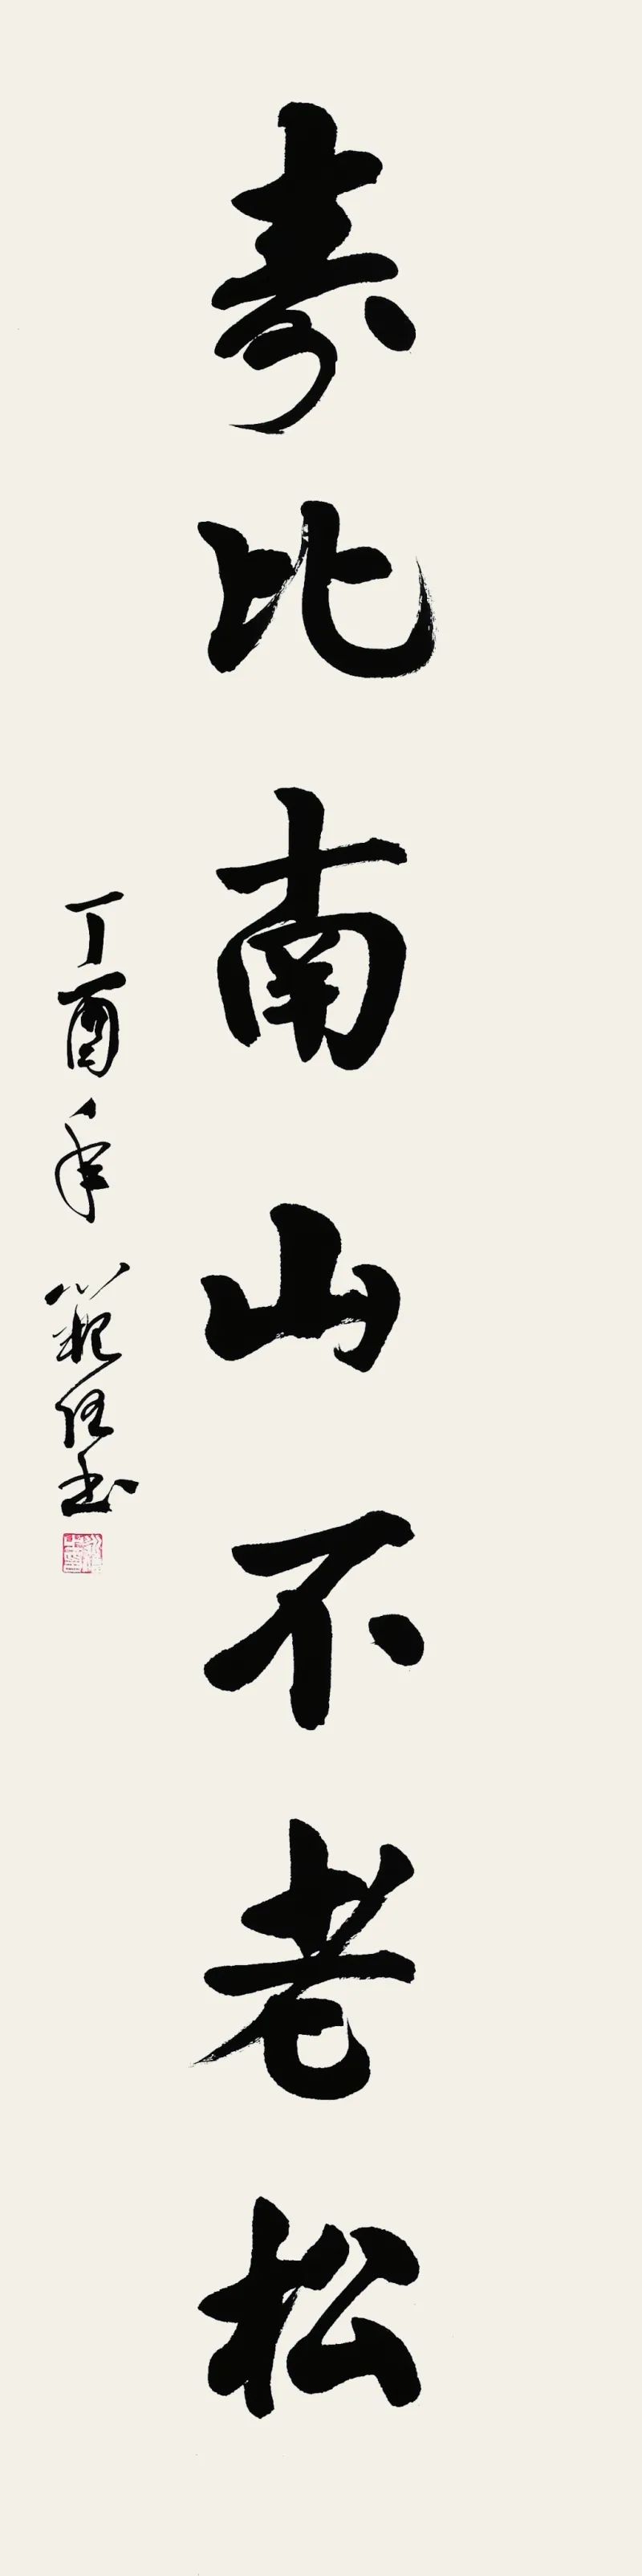 寿比南山不老松
丁酉年 范任书